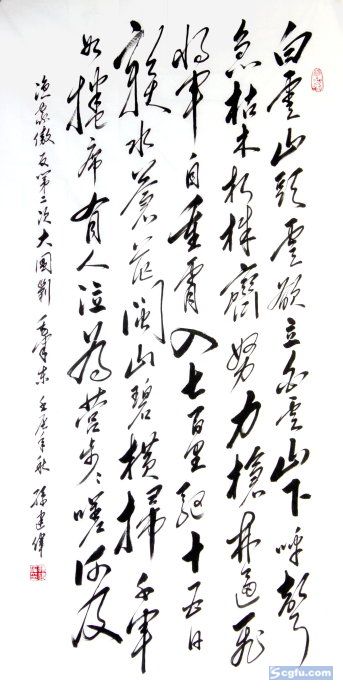 白雲山頭雲欲立白雲山下呼聲
急枯木朽株齊努力槍林逼飛
将軍自重霄入七百里驱十五日
贛水蒼茫閩山碧橫掃千軍
如捲席有人泣為營步々嗟何及
漁家傲反第二次大圍剿 毛澤東 壬辰年秋 孫建偉
Scgfu.com